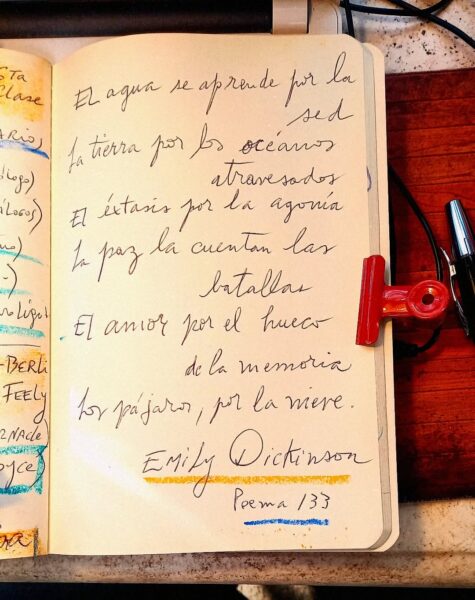 sta
Clase
ARIO,
logo)
álogos)
El agua se aprende por la
sed
La tierra por los océanos
atravesados
El éxtasis por la agonía
La paz la cuentan las
batallas
El amor por el hueco
de la memoria
Los pájaros, por la nieve.
Emily Dickinson
Poema 133
FEELY